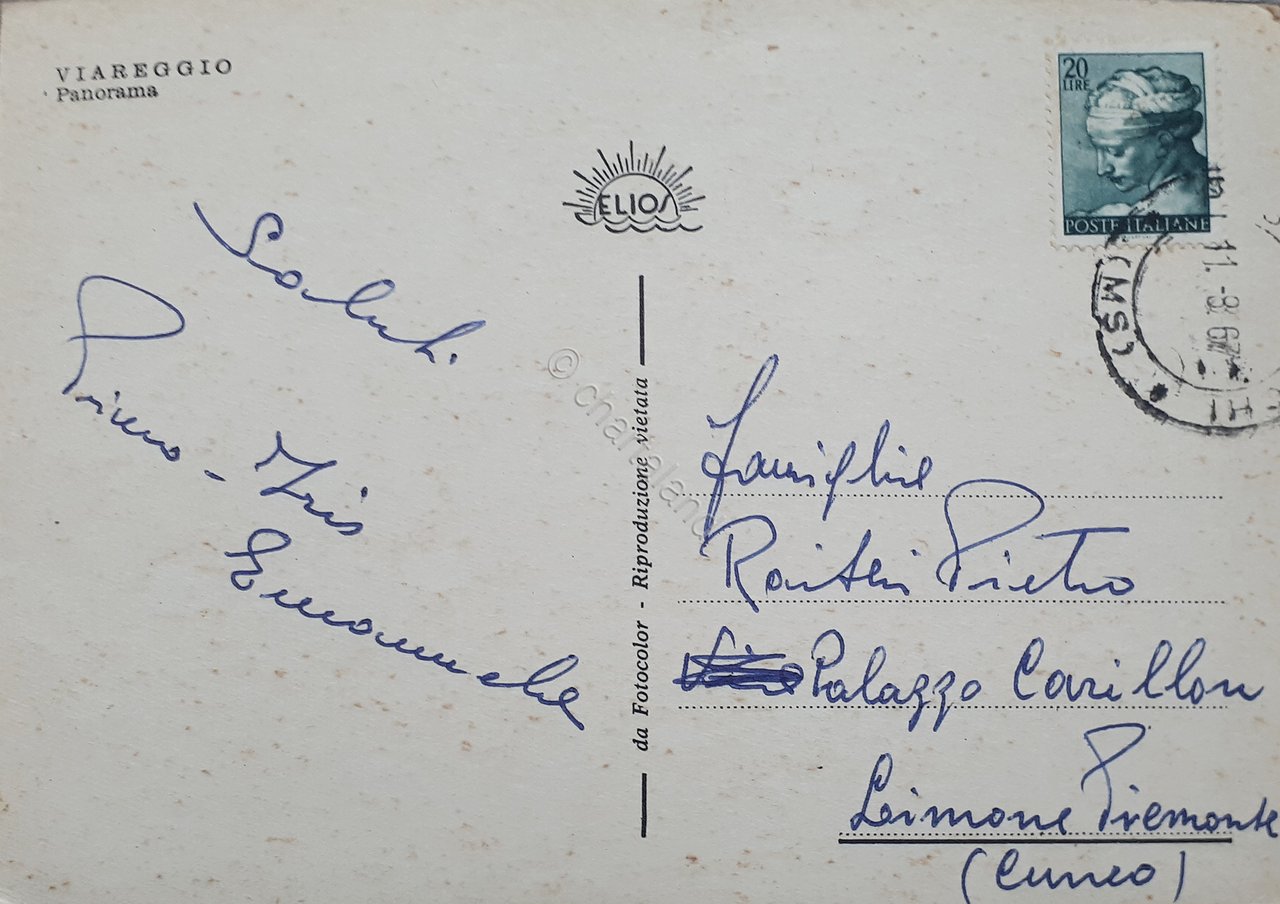 VIAREGGIO
Panorama
20
LIRE
POSTE ITALIANE
ELIOS
(MS)
11.-8 67
Saluti
Primo - Iris
Emanuela
da Fotocolor - Riproduzione vietata
© chartaland
Famiglia
Raiteri Pietro
Palazzo Carillon
Limone Piemonte
(Cuneo)